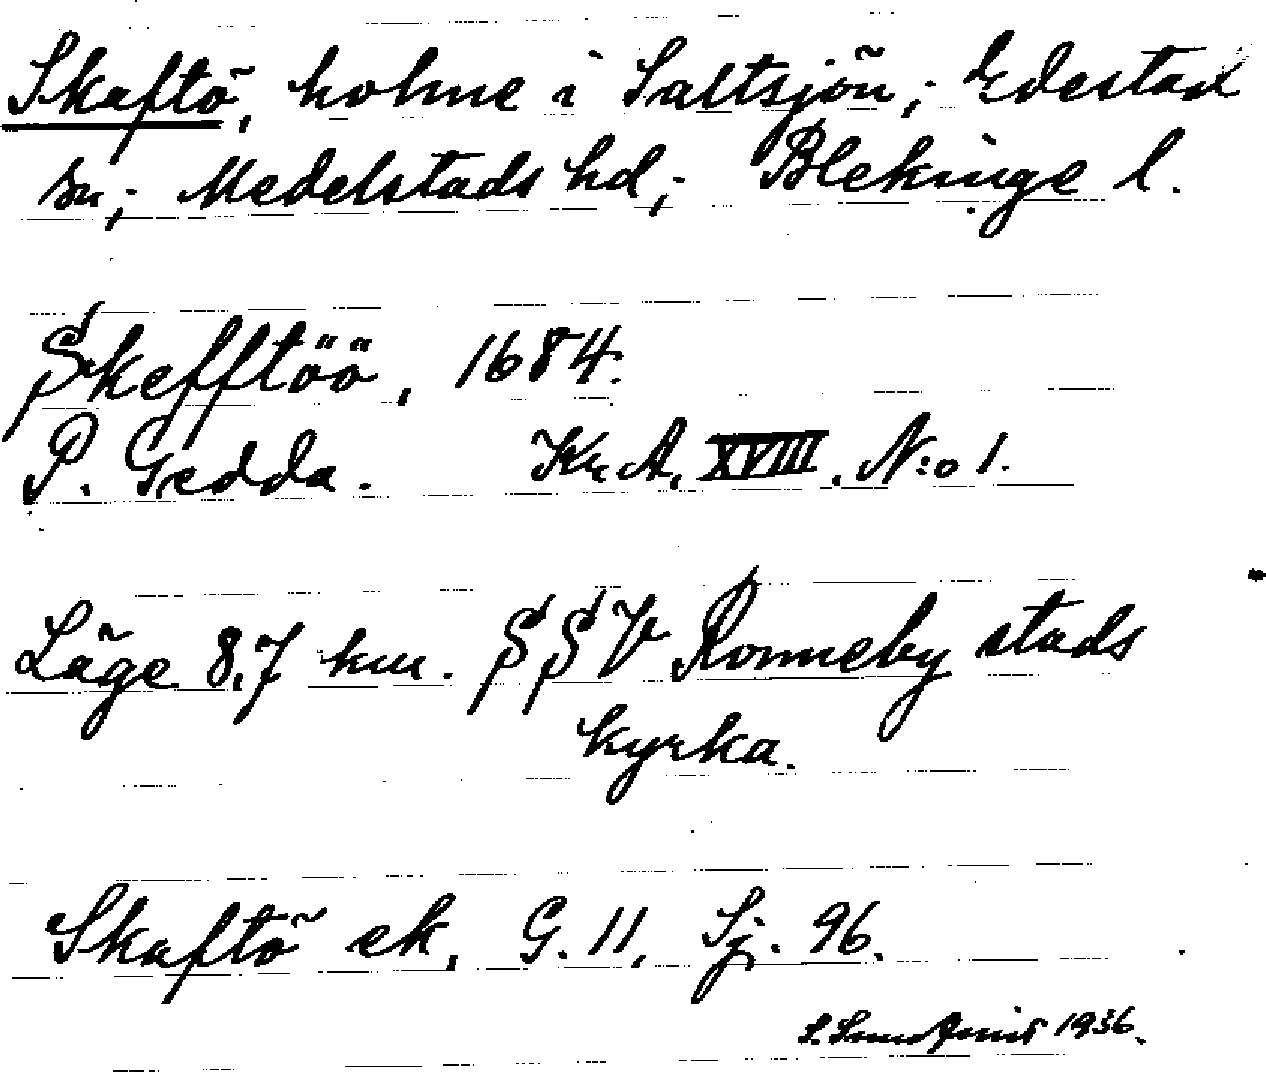 Skaftö, holme i Saltsjön; Edestad
sn; Medelstads hd; Blekinge l.
Skefftöö, 1684.
P. Gedda. Kr. A. XVIII. N:o 1.
Läge 8,7 km. SSV Ronneby stads
kyrka.
Skaftö ek. G. 11, Sj. 96.
1936.